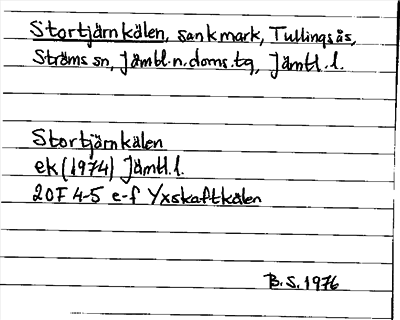 Stortjärnkälen, sankmark, Tullingsås,
Ströms sn, Jämtl.n.doms.tg, Jämtl.l.
Stortjärnkälen
ek (1974) Jämtl.l.
20F 4-5 e-f Yxskaftkälen
B.S. 1976